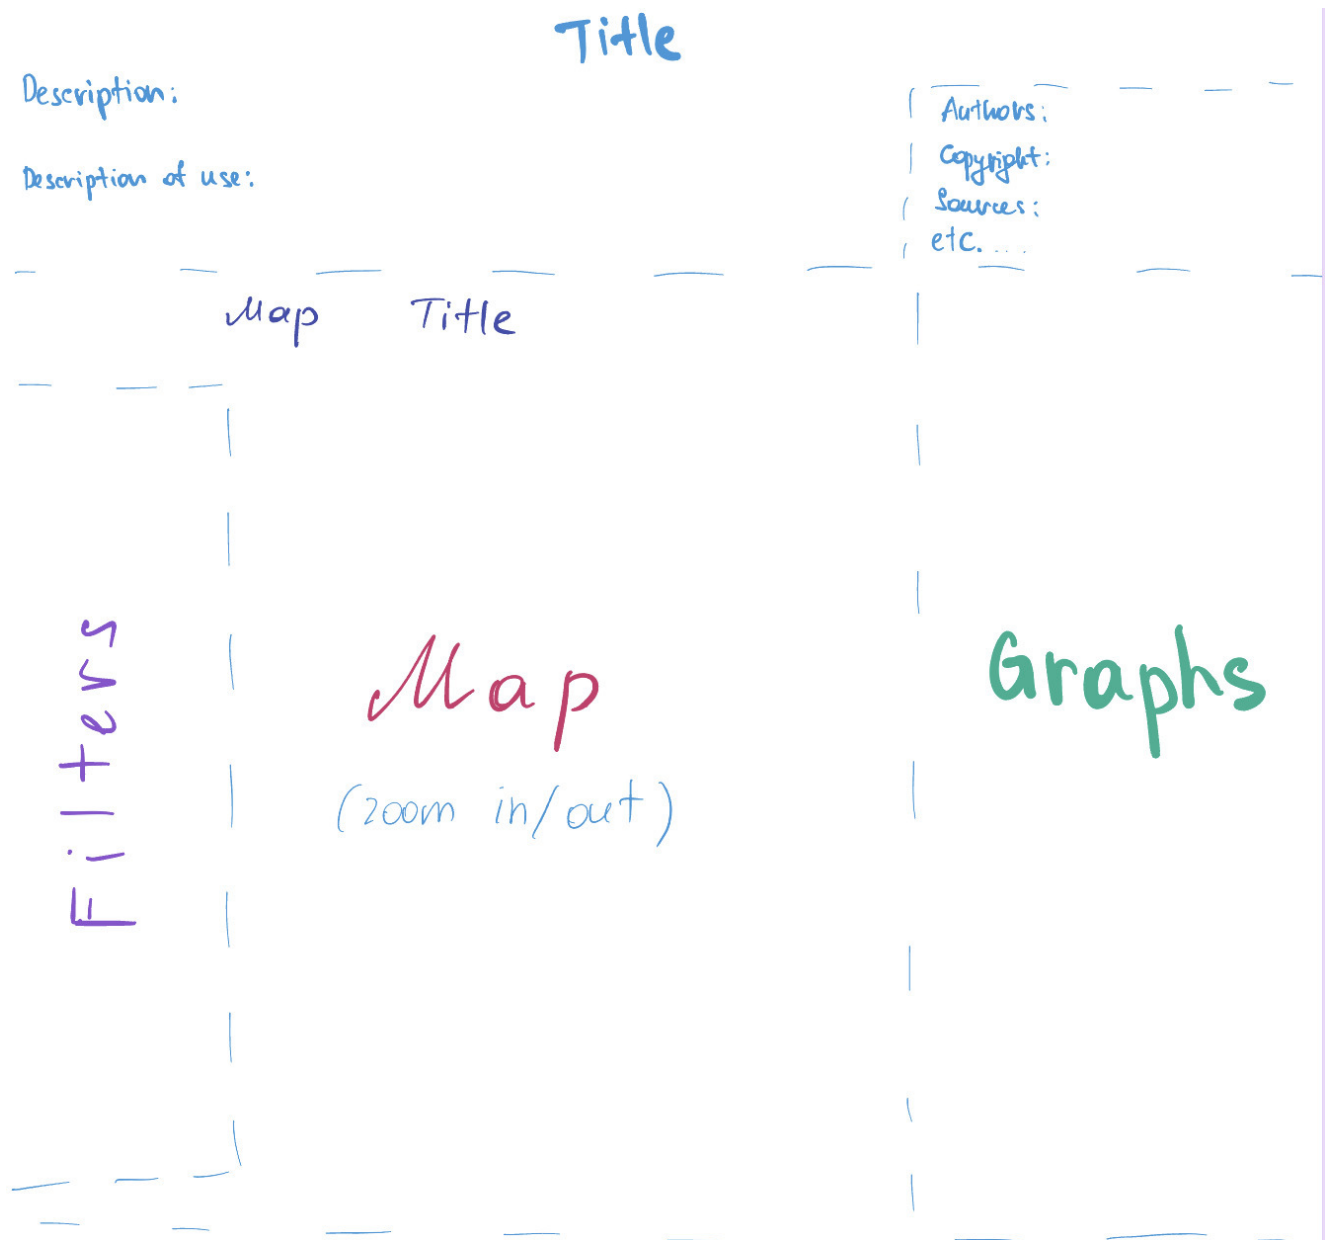 Title
Description:
Description of use:
Authors:
Copyright:
Sources:
etc. ....
Map Title
Filters
Map
(zoom in/out)
Graphs